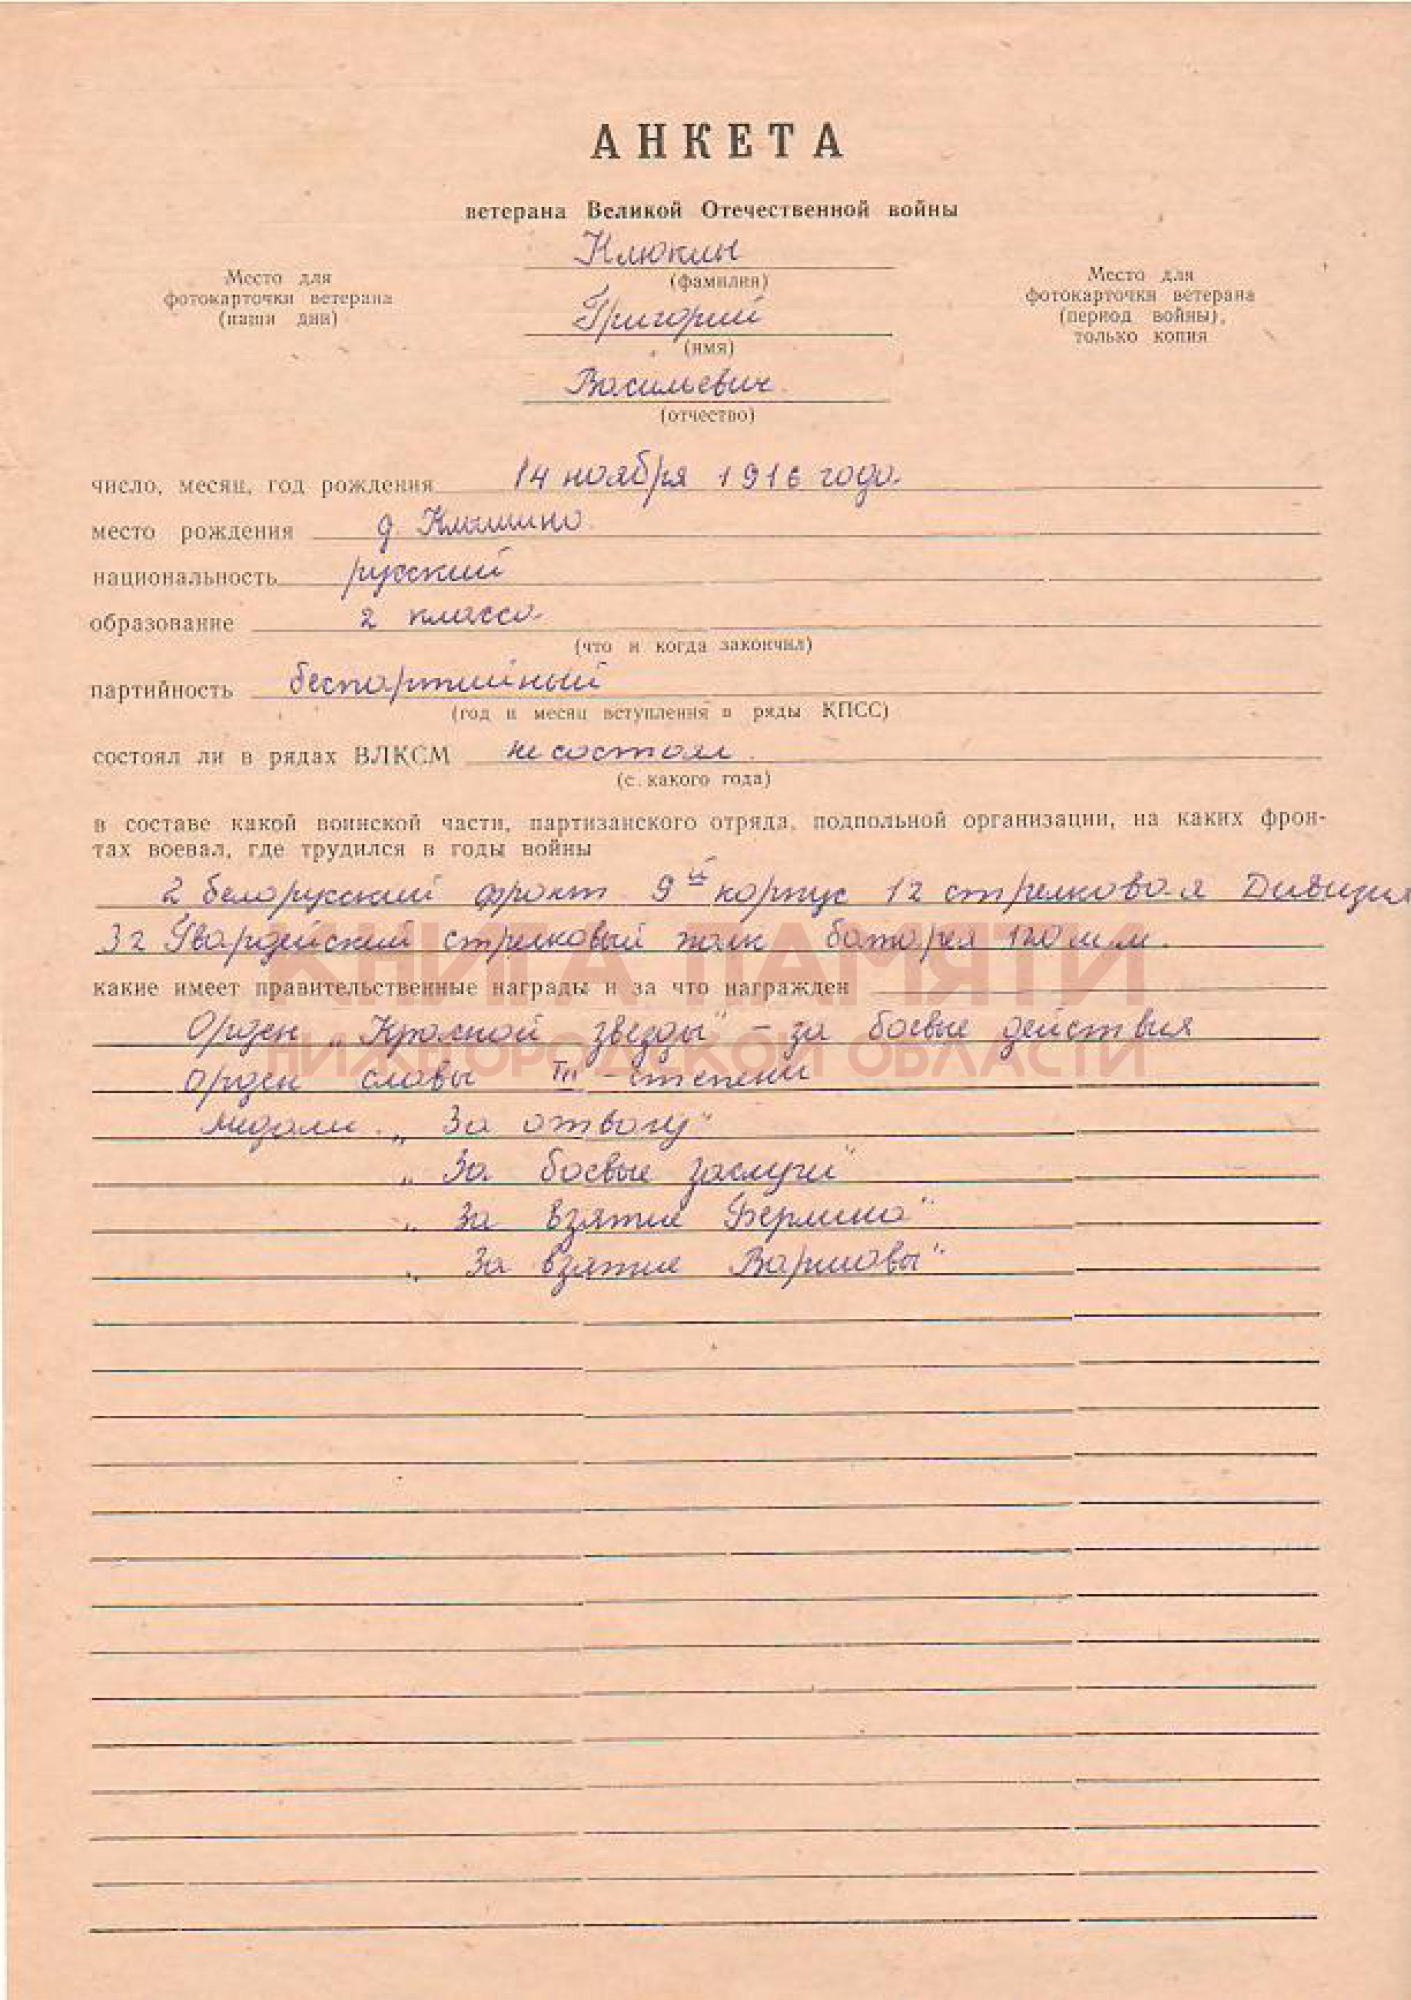 АНКЕТА
ветерана Великой Отечественной войны
Клюкин
(фамилия)
Григорий
(имя)
Васильевич.
(отчество)
Место для
фотокарточки ветерана
(наши дни)
Место для
фотокарточки ветерана
(период войны),
только копия
число, месяц, год рождения 14 ноября 1916 года.
место рождения д.
национальность русский
образование 2 класса.
(что и когда закончил)
партийность беспартийный
(год и месяц вступления в ряды КПСС)
состоял ли в рядах ВЛКСМ не состоял.
(с какого года)
в составе какой воинской части, партизанского отряда, подпольной организации, на каких фрон-
тах воевал, где трудился в годы войны
2 белорусский фронт 9й корпус 12 стрелковая Дивизия
32 Гвардейский стрелковый полк батарея 120 м.м.
КНИГА ПАМЯТИ
какие имеет правительственные награды и за что награжден
Орден „Красной звезды" – за боевые действия
НИЖЕГОРОДСКОЙ ОБЛАСТИ
Орден славы III – степени
медали. „За отвагу"
„За боевые заслуги"
„За взятие Берлина"
„За взятие Варшавы"